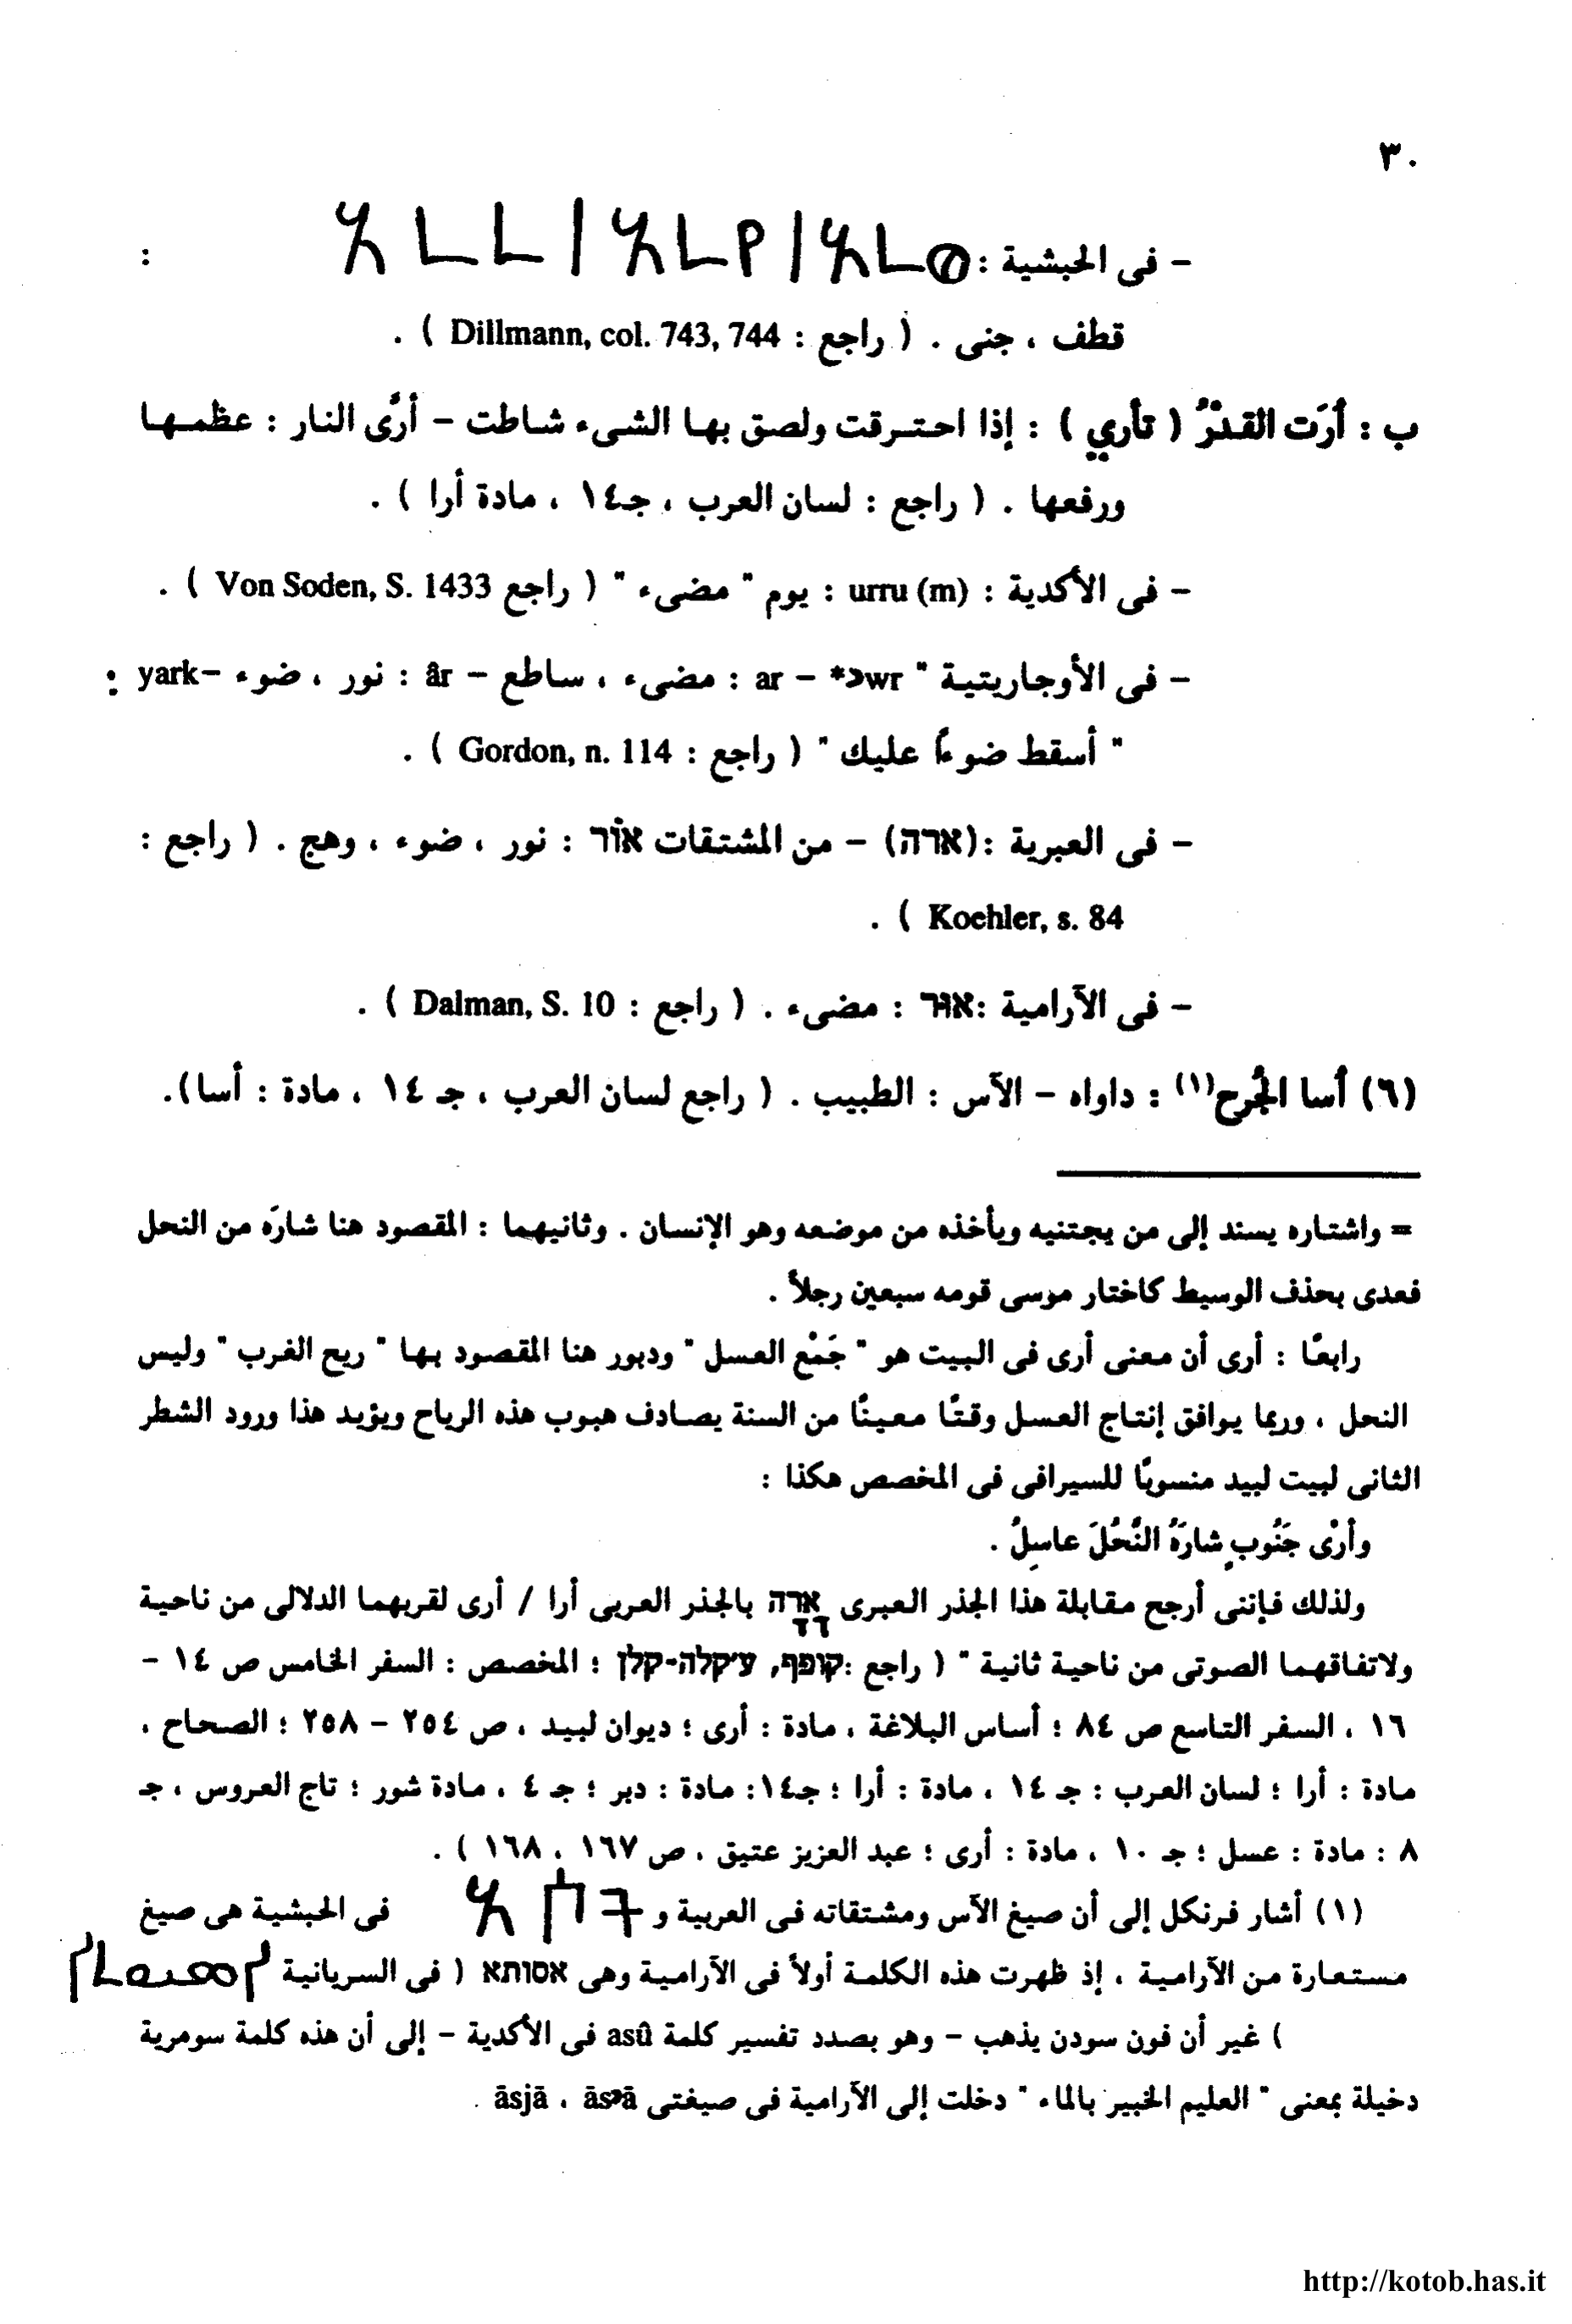 ٣٠
- فى الحبشية : አረረ / አረየ / አረወ :
قطف ، جنى . ( راجع : Dillmann, col. 743, 744 ) .
ب : أرَت القدْرُ ( تأري ) : إذا احترقت ولصق بها الشىء شاطت - أرَّى النار : عظمها
ورفعها . ( راجع : لسان العرب ، جـ١٤ ، مادة أرا ) .
- فى الأكدية : urru (m) : يوم " مضىء " ( راجع Von Soden, S. 1433 ) .
- فى الأوجاريتية " wr - ar : مضىء ، ساطع - âr : نور ، ضوء -yark :
" أسقط ضوءًا عليك " ( راجع : Gordon, n. 114 ) .
- فى العبرية :(ארה) - من المشتقات אוֹר : نور ، ضوء ، وهج . ( راجع :
Koehler, s. 84 ) .
- فى الآرامية :אוּר : مضىء . ( راجع : Dalman, S. 10 ) .
(٦) أسا الجُرح(١) : داواه - الآس : الطبيب . ( راجع لسان العرب ، جـ ١٤ ، مادة : أسا).
= واشتاره يسند إلى من يجتنيه ويأخذه من موضعه وهو الإنسان . وثانيهما : المقصود هنا شارَه من النحل
فعدى بحذف الوسيط كاختار موسى قومه سبعين رجلاً .
رابعًا : أرى أن معنى أرى فى البيت هو " جَمْع العسل " ودبور هنا المقصود بها " ريح الغرب " وليس
النحل ، وربما يوافق إنتاج العسل وقتًا معينًا من السنة يصادف هبوب هذه الرياح ويؤيد هذا ورود الشطر
الثانى لبيت لبيد منسوبًا للسيرافى فى المخصص هكذا :
وأرْى جَنُوبٍ شارَهُ النَّحْلَ عاسِلُ .
ولذلك فإننى أرجح مقابلة هذا الجذر العبرى ארה بالجذر العربى أرا / أرى لقربهما الدلالى من ناحية
ولاتفاقهما الصوتى من ناحية ثانية " ( راجع : ؛ المخصص : السفر الخامس ص ١٤ -
١٦ ، السفر التاسع ص ٨٤ ؛ أساس البلاغة ، مادة : أرى ؛ ديوان لبيد ، ص ٢٥٤ - ٢٥٨ ؛ الصحاح ،
مادة : أرا ؛ لسان العرب : جـ ١٤ ، مادة : أرا ؛ جـ١٤: مادة : دبر ؛ جـ ٤ ، مادة شور ؛ تاج العروس ، جـ
٨ : مادة : عسل ؛ جـ ١٠ ، مادة : أرى ؛ عبد العزيز عتيق ، ص ١٦٧ ، ١٦٨ ) .
(١) أشار فرنكل إلى أن صيغ الآس ومشتقاته فى العربية و فى الحبشية هى صيغ
مستعارة من الآرامية ، إذ ظهرت هذه الكلمة أولاً فى الآرامية وهى אסותא ( فى السريانية
) غير أن فون سودن يذهب - وهو بصدد تفسير كلمة asû فى الأكدية - إلى أن هذه كلمة سومرية
دخيلة بمعنى " العليم الخبير بالماء " دخلت إلى الآرامية فى صيغتى āsʾā ، āsjā .
http://kotob.has.it